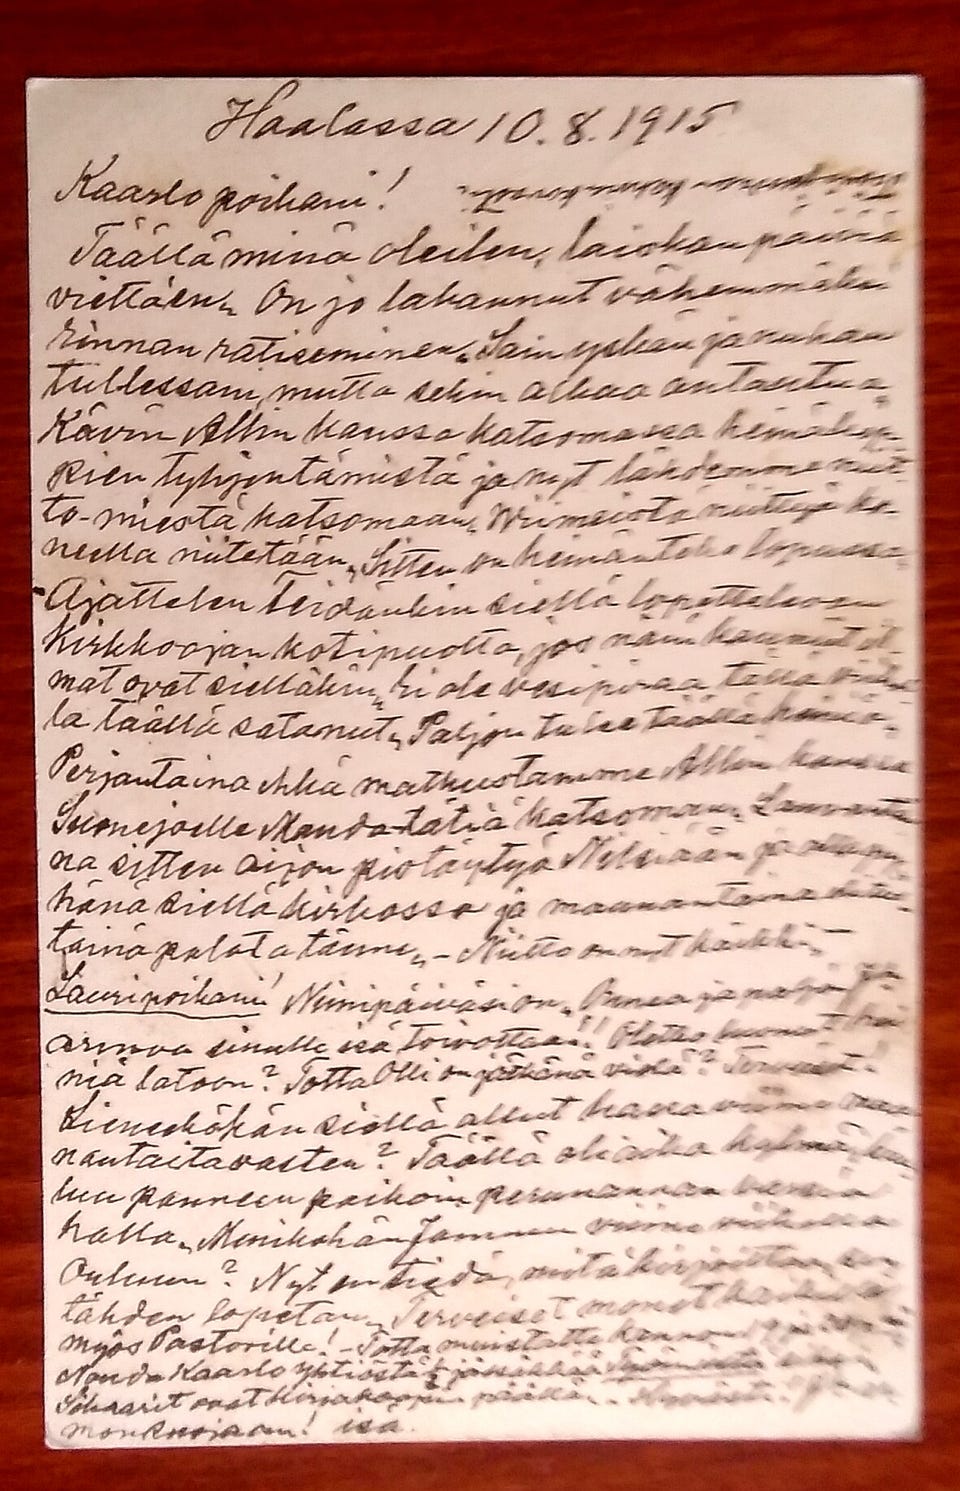 Haalassa 10.8.1915
Kaarlo poikani!
Täällä minä oleilen, laiskan päiviä
viettäen. On jo lakannut vähemmäksi
rinnan ratiseminen. Sain yskän ja nuhan
tullessani, mutta sekin alkaa antautua.
Kävin Allin kanssa katsomassa heinälap-
pien tyhjentämistä ja nyt lähdemme niit-
to-miestä katsomaan. Wiimeistä niittyä ko-
neella niitetään. Sitten on heinänteko lopussa.
-Ajattelen Teidänkin siellä lopettelevan
Kirkkoojan kotipuolta, jos näin kauniit il-
mat ovat sielläkin. Ei ole vesipisaa tällä
la täällä satanut. Paljon tulee täällä heiniä.
Perjantaina ehkä matkustamme Allin kanssa
Suonejoelle Manda-tätiä katsomaan. Lauvantai-
na sitten aijon pistäytyä Nilsiään ja olla py-
hänä siellä kirkossa ja maanantaina
taina palata tänne. - Niitto on nyt
Lauri poikani! Nimipäiväsi on. Onnea ja paljon
armoa sinulle isä toivottaa!! Oletko luonut hei
niä latoon? Totta Olli on jätkänä vielä? Terveiset!
Lieneeköhän siellä ollut hallaa viime maa
nantaita vasten? Täällä oli aika kylmä,
luu panneen paikoin perunannan varsia
halla. Menikohän viime viikolla
Ouluun? Nyt en tiedä, mitä kirjoittaa, sen
tähden lopetan. Terveiset monet
myös Pastorille! - Totta muistatte
Kaarlo yhtiöstä
ovat kirjakaapin päällä.
isä.